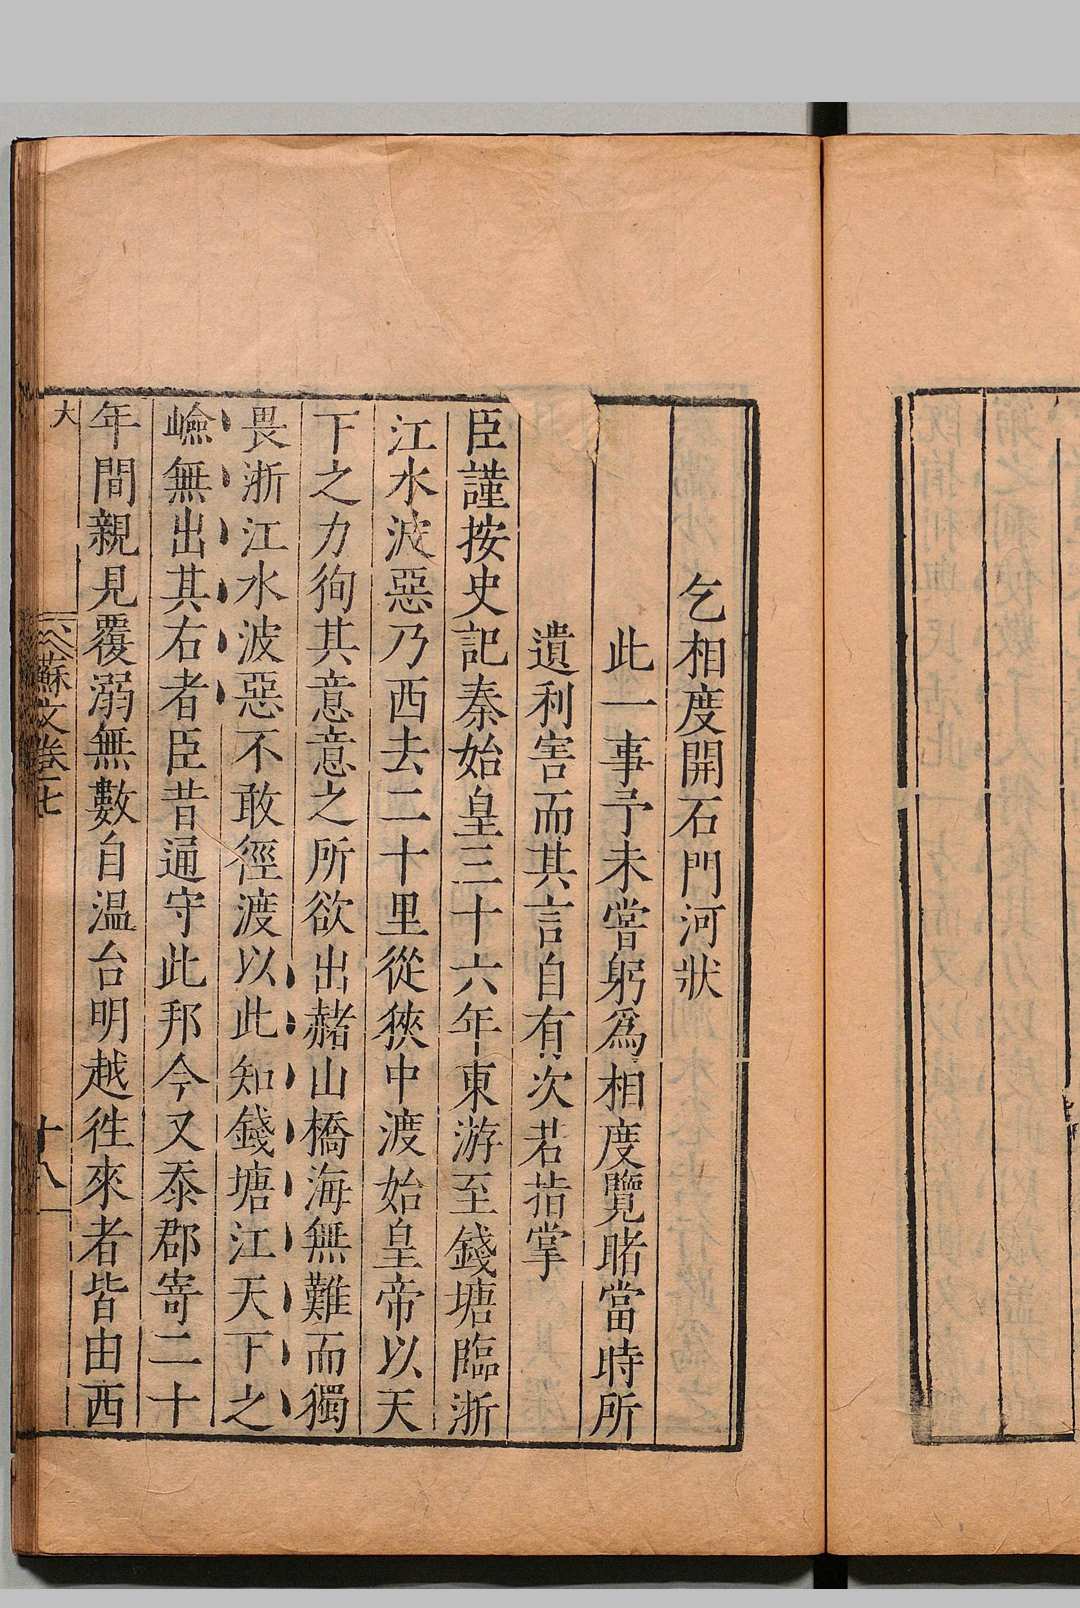 乞相度開石門河狀
此一事予未嘗躬爲相度覽睹當時所
遺利害而其言自有次若指掌
臣謹按史記秦始皇三十六年東游至錢塘臨浙
江水波惡乃西去二十里從狹中渡始皇帝以天
下之力徇其意意之所欲出赭山橋海無難而獨
畏浙江水波惡不敢徑渡以此知錢塘江天下之
嶮無出其右者臣昔通守此邦今又忝郡寄二十
年間親見覆溺無數自温台明越徃來者皆由西
大
蘇文卷七
十八